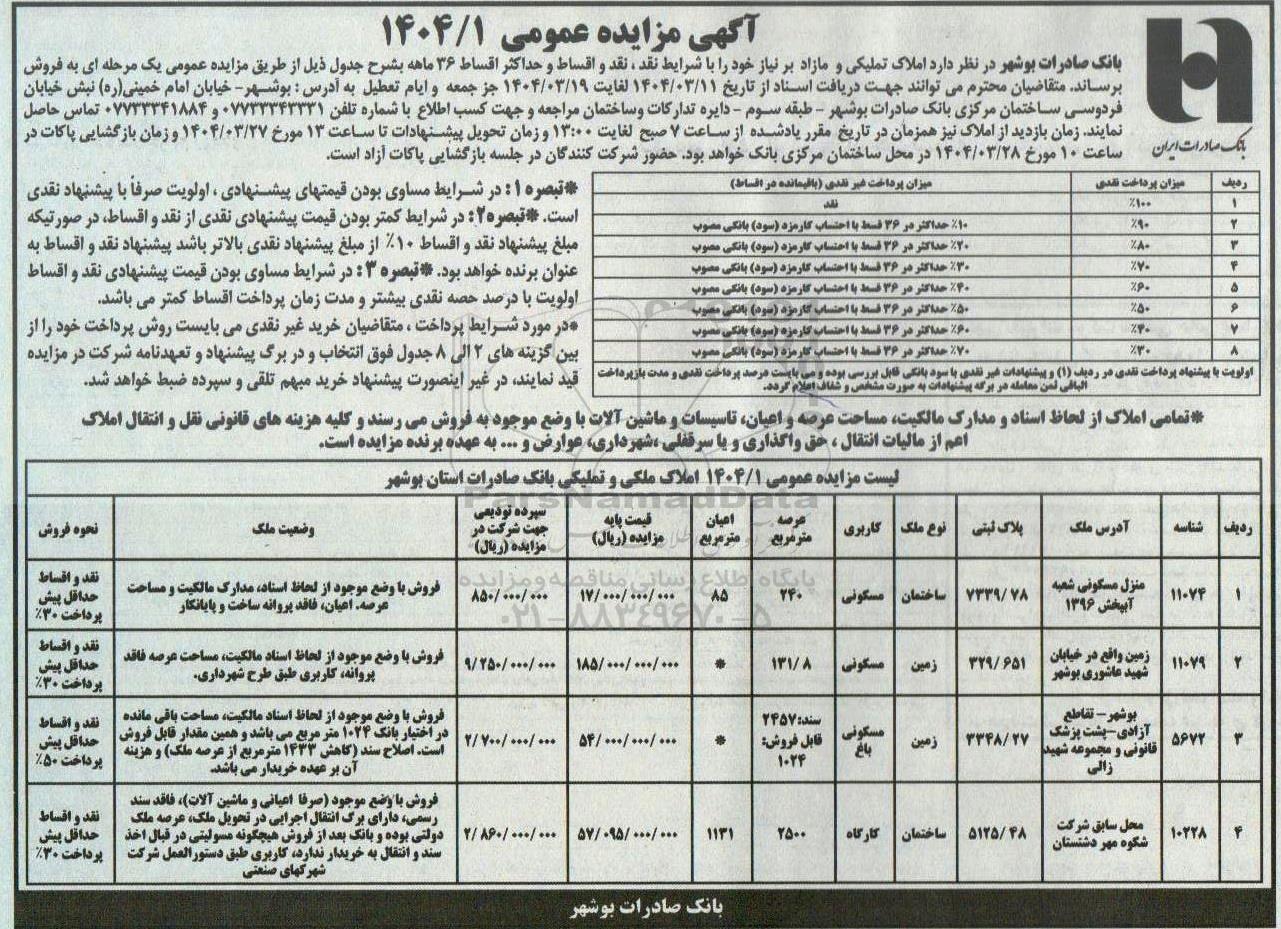 آگهی مزایده عمومی ۱۴۰۴/۱
بانک صادرات ایران
بانک صادرات بوشهر در نظر دارد املاک تملیکی و مازاد بر نیاز خود را با شرایط نقد ، نقد و اقساط و حداکثر اقساط ۳۶ ماهه بشرح جدول ذیل از طریق مزایده عمومی یک مرحله ای به فروش
برساند. متقاضیان محترم می توانند جهت دریافت اسناد از تاریخ ۱۴۰۴/۰۳/۱۱ لغایت ۱۴۰۴/۰۳/۱۹ جز جمعه و ایام تعطیل به آدرس : بوشهر- خیابان امام خمینی(ره) نبش خیابان
فردوسی ساختمان مرکزی بانک صادرات بوشهر - طبقه سوم - دایره تدارکات وساختمان مراجعه و جهت کسب اطلاع با شماره تلفن ۰۷۷۳۳۳۴۳۳۳۱ و ۰۷۷۳۳۳۴۱۸۸۴ تماس حاصل
نمایند. زمان بازدید از املاک نیز همزمان در تاریخ مقرر یادشده از ساعت ۷ صبح لغایت ۱۳:۰۰ و زمان تحویل پیشنهادات تا ساعت ۱۳ مورخ ۱۴۰۴/۰۳/۲۷ و زمان بازگشایی پاکات در
ساعت ۱۰ مورخ ۱۴۰۴/۰۳/۲۸ در محل ساختمان مرکزی بانک خواهد بود. حضور شرکت کنندگان در جلسه بازگشایی پاکات آزاد است.
ردیف میزان پرداخت نقدی میزان پرداخت غیر نقدی (باقیمانده در اقساط)
۱ ۱۰۰٪ نقد
۲ ۹۰٪ ۱۰٪ حداکثر در ۳۶ قسط با احتساب کارمزد (سود) بانکی مصوب
۳ ۸۰٪ ۲۰٪ حداکثر در ۳۶ قسط با احتساب کارمزد (سود) بانکی مصوب
۴ ۷۰٪ ۳۰٪ حداکثر در ۳۶ قسط با احتساب کارمزد (سود) بانکی مصوب
۵ ۶۰٪ ۴۰٪ حداکثر در ۳۶ قسط با احتساب کارمزد (سود) بانکی مصوب
۶ ۵۰٪ ۵۰٪ حداکثر در ۳۶ قسط با احتساب کارمزد (سود) بانکی مصوب
۷ ۴۰٪ ۶۰٪ حداکثر در ۳۶ قسط با احتساب کارمزد (سود) بانکی مصوب
۸ ۳۰٪ ۷۰٪ حداکثر در ۳۶ قسط با احتساب کارمزد (سود) بانکی مصوب
اولویت با پیشنهاد پرداخت نقدی در ردیف (۱) و پیشنهادات غیر نقدی با سود بانکی قابل بررسی بوده و می بایست درصد پرداخت نقدی و مدت بازپرداخت
الباقی ثمن معامله در برگه پیشنهادات به صورت مشخص و شفاف اعلام گردد.
*تبصره ۱: در شرایط مساوی بودن قیمتهای پیشنهادی ، اولویت صرفاً با پیشنهاد نقدی
است. *تبصره۲: در شرایط کمتر بودن قیمت پیشنهادی نقدی از نقد و اقساط، در صورتیکه
مبلغ پیشنهاد نقد و اقساط ۱۰٪ از مبلغ پیشنهاد نقدی بالاتر باشد پیشنهاد نقد و اقساط به
عنوان برنده خواهد بود. *تبصره ۳: در شرایط مساوی بودن قیمت پیشنهادی نقد و اقساط
اولویت با درصد حصه نقدی بیشتر و مدت زمان پرداخت اقساط کمتر می باشد.
*در مورد شرایط پرداخت ، متقاضیان خرید غیر نقدی می بایست روش پرداخت خود را از
بین گزینه های ۲ الی ۸ جدول فوق انتخاب و در برگ پیشنهاد و تعهدنامه شرکت در مزایده
قید نمایند، در غیر اینصورت پیشنهاد خرید مبهم تلقی و سپرده ضبط خواهد شد.
*تمامی املاک از لحاظ اسناد و مدارک مالکیت، مساحت عرصه و اعیان، تاسیسات و ماشین آلات با وضع موجود به فروش می رسند و کلیه هزینه های قانونی نقل و انتقال املاک
اعم از مالیات انتقال ، حق واگذاری و یا سرقفلی ،شهرداری، عوارض و ... به عهده برنده مزایده است.
لیست مزایده عمومی ۱۴۰۴/۱ املاک ملکی و تملیکی بانک صادرات استان بوشهر
ParsNamadData
ردیف شناسه آدرس ملک پلاک ثبتی نوع ملک کاربری عرصه مترمربع اعیان مترمربع قیمت پایه مزایده (ریال) سپرده تودیعی جهت شرکت در مزایده (ریال) وضعیت ملک نحوه فروش
پایگاه اطلاع رسانی مناقصه و مزایده
۰۲۱-۸۸۳۴۹۶۷۰-۵
۱ ۱۱۰۷۴ منزل مسکونی شعبه آبپخش ۱۳۹۶ ۷۳۳۹/۷۸ ساختمان مسکونی ۲۴۰ ۸۵ ۱۷/۰۰۰/۰۰۰/۰۰۰ ۸۵۰/۰۰۰/۰۰۰ فروش با وضع موجود از لحاظ اسناد، مدارک مالکیت و مساحت عرصه. اعیان، فاقد پروانه ساخت و پایانکار نقد و اقساط حداقل پیش پرداخت ۳۰٪
۲ ۱۱۰۷۹ زمین واقع در خیابان شهید عاشوری بوشهر ۳۲۹/۶۵۱ زمین مسکونی ۱۳۱/۸ * ۱۸۵/۰۰۰/۰۰۰/۰۰۰ ۹/۲۵۰/۰۰۰/۰۰۰ فروش با وضع موجود از لحاظ اسناد مالکیت، مساحت عرصه فاقد پروانه، کاربری طبق طرح شهرداری. نقد و اقساط حداقل پیش پرداخت ۳۰٪
۳ ۵۶۷۲ بوشهر- تقاطع آزادی-پشت پزشک قانونی و مجموعه شهید زالی ۳۳۴۸/۲۷ زمین مسکونی باغ سند:۲۴۵۷ قابل فروش: ۱۰۲۴ * ۵۴/۰۰۰/۰۰۰/۰۰۰ ۲/۷۰۰/۰۰۰/۰۰۰ فروش با وضع موجود از لحاظ اسناد مالکیت، مساحت باقی مانده در اختیار بانک ۱۰۲۴ متر مربع می باشد و همین مقدار قابل فروش است. اصلاح سند (کاهش ۱۴۳۳ مترمربع از عرصه ملک) و هزینه آن بر عهده خریدار می باشد. نقد و اقساط حداقل پیش پرداخت ۵۰٪
۴ ۱۰۲۲۸ محل سابق شرکت شکوه مهر دشتستان ۵۱۲۵/۴۸ ساختمان کارگاه ۲۵۰۰ ۱۱۳۱ ۵۷/۰۹۵/۰۰۰/۰۰۰ ۲/۸۶۰/۰۰۰/۰۰۰ فروش با وضع موجود (صرفا اعیانی و ماشین آلات)، فاقد سند رسمی، دارای برگ انتقال اجرایی در تحویل ملک، عرصه ملک دولتی بوده و بانک بعد از فروش هیچگونه مسولیتی در قبال اخذ سند و انتقال به خریدار ندارد، کاربری طبق دستورالعمل شرکت شهرکهای صنعتی نقد و اقساط حداقل پیش پرداخت ۳۰٪
بانک صادرات بوشهر